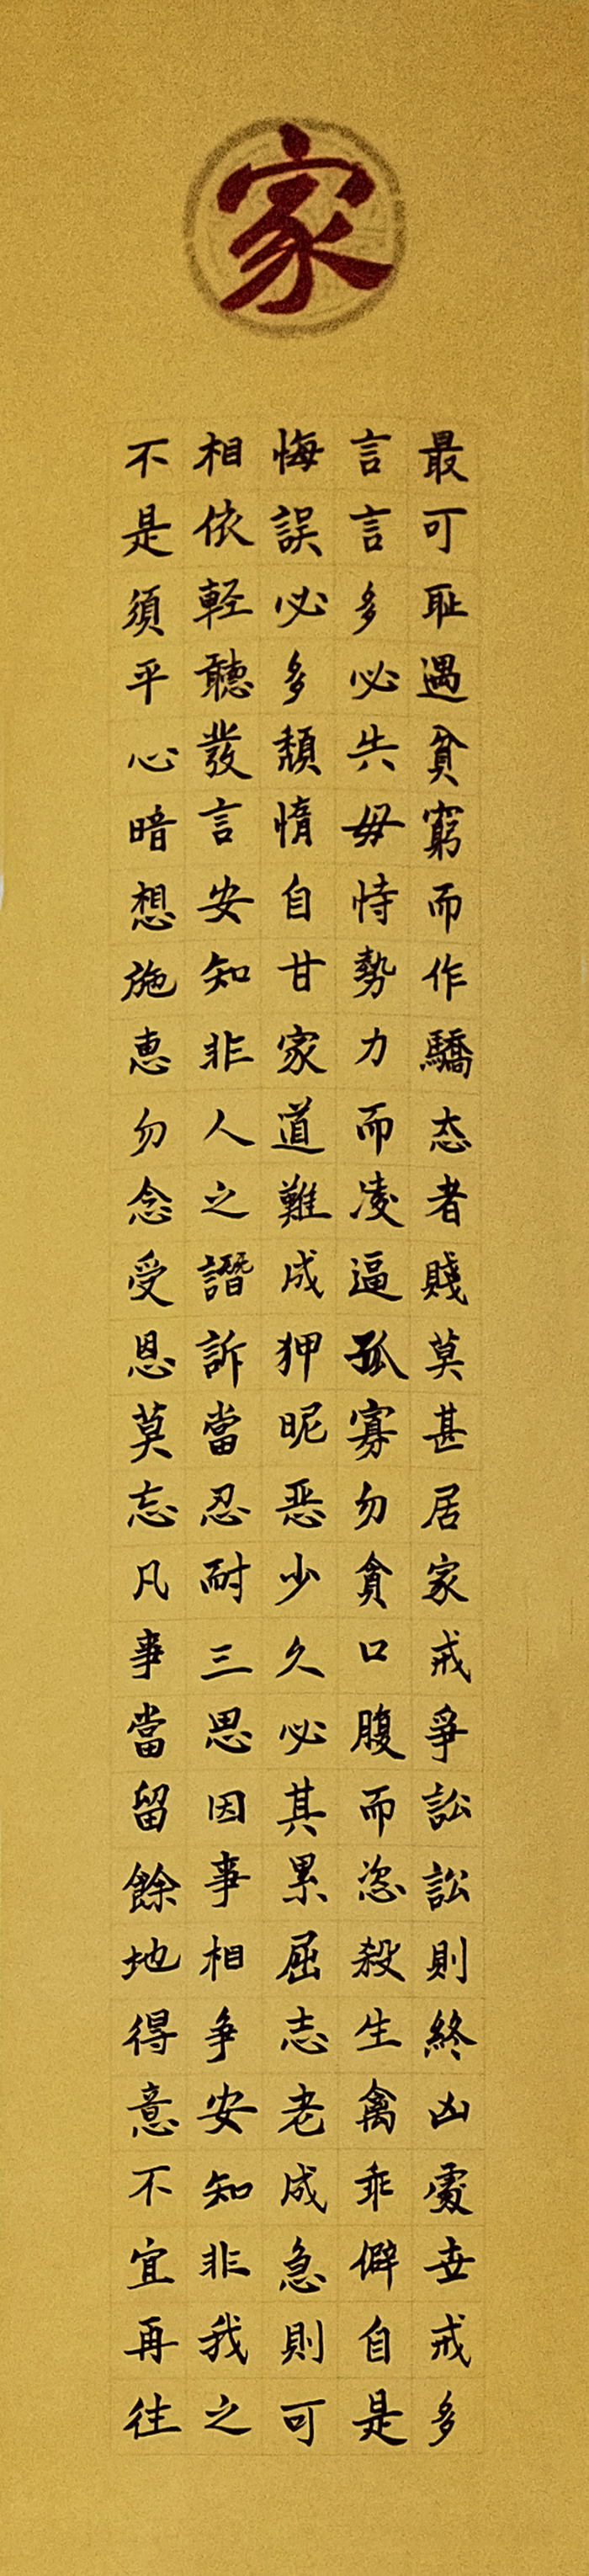 家
最可耻遇貧窮而作驕态者賤莫甚居家戒爭訟訟則終凶處世戒多
言言多必失毋恃勢力而凌逼孤寡勿貪口腹而恣殺生禽乖僻自是
悔誤必多頽惰自甘家道難成狎昵恶少久必其累屈志老成急則可
相依輕聽發言安知非人之譖訴當忍耐三思因事相争安知非我之
不是須平心暗想施恵勿念受恩莫忘凡事當留餘地得意不宜再往